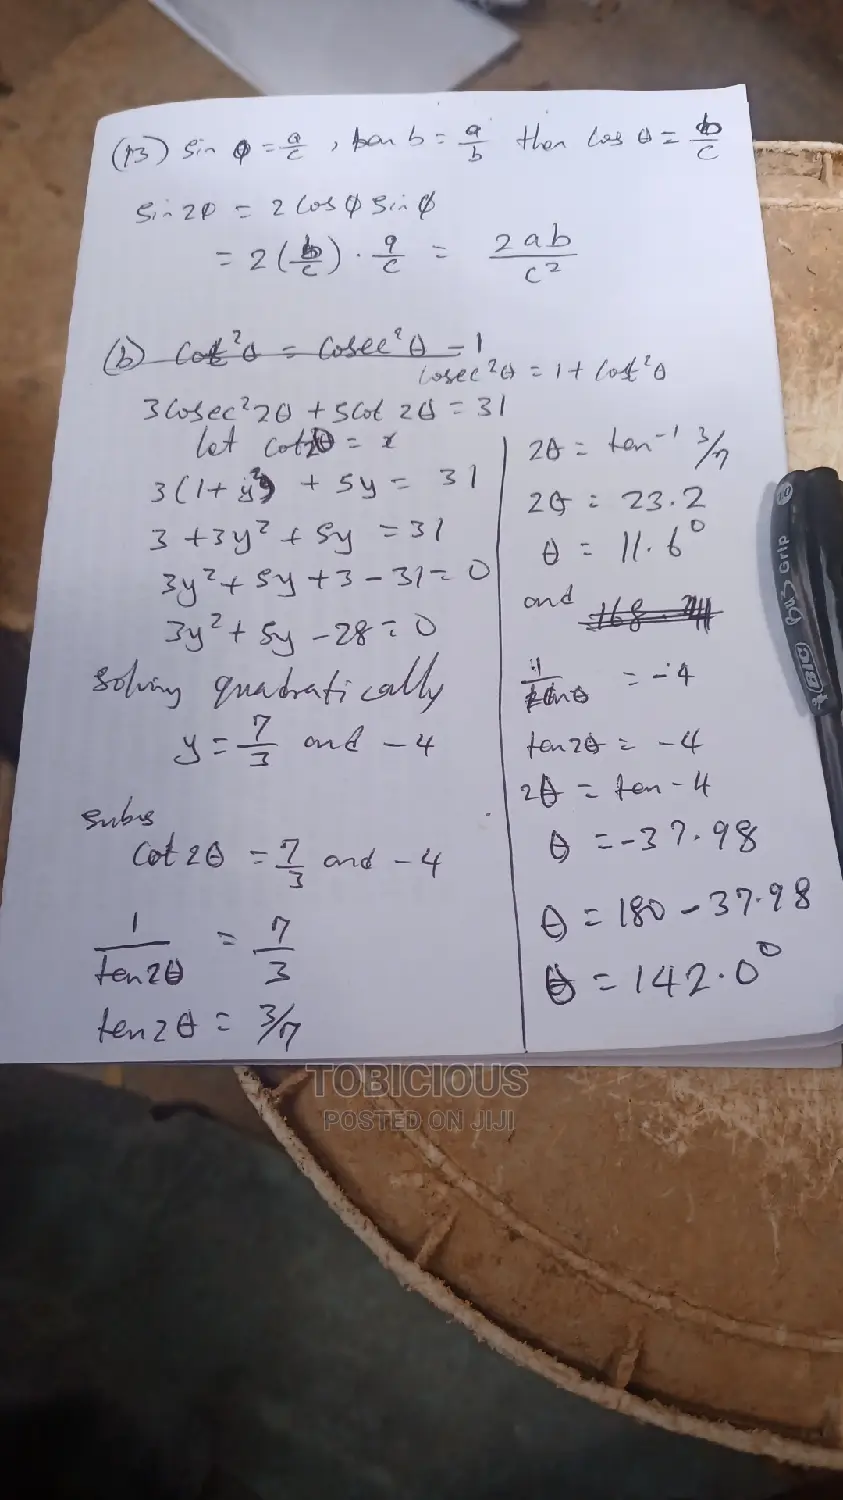 (13) sin φ = a/c , tan b = a/b then cos θ = b/c
sin 2φ = 2 cos φ sin φ
= 2 (b/c) · a/c = 2ab/c²
(b) Cot²θ = Cosec²θ - 1
Cosec²θ = 1 + Cot²θ
3Cosec²2θ + 5Cot 2θ = 31
let Cot2θ = x
3(1 + y²) + 5y = 31
3 + 3y² + 5y = 31
3y² + 5y + 3 - 31 = 0
3y² + 5y - 28 = 0
Solving quadratically
y = 7/3 and - 4
Subs
Cot 2θ = 7/3 and - 4
1/tan2θ = 7/3
tan2θ = 3/7
2θ = tan⁻¹ 3/7
2θ = 23.2
θ = 11.6°
and
1/tanθ = -4
tan2θ = -4
2θ = tan - 4
θ = -37.98
θ = 180 - 37.98
θ = 142.0°
BIC GriP
TOBICIOUS
POSTED ON JIJI